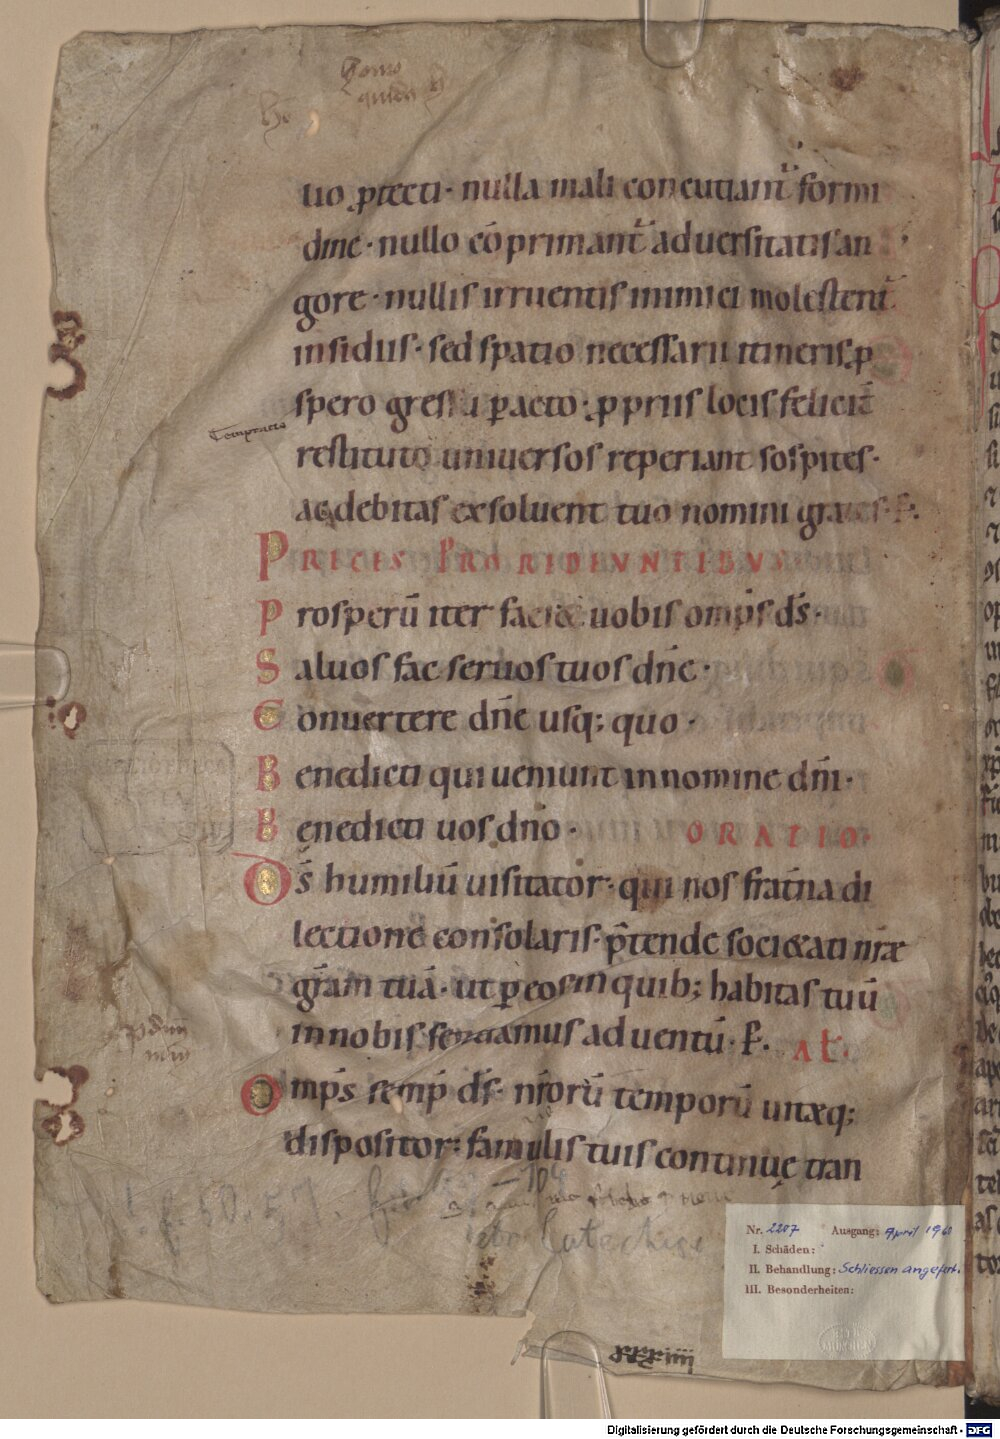 uo ꝓtecti· nulla mali concutiant᷑ formi
dine· nullo cōprimant᷑ aduersitatis an
gore· nullis irruentis inimici molestent᷑
insidiis· sed spatio necessarii itineris ꝓ
spero gressu ꝑacto· ꝓpriis locis felicit̄
restituto uniuersos reperiant sospites·
ac debitas exsoluent tuo nomini grates· ꝑ·
PRECES PRO REDEUNTIBUS
Prosperū iter faciet uobis omp̄s d̄s·
Saluos fac seruos tuos dn̄e·
Conuertere dn̄e usq; quo·
Benedicti qui ueniunt in nomine dn̄i·
Benedicti uos dn̄o·
ORATIO·
D̄s humiliū uisitator· qui nos frat̄na di
lectione consolaris· p̄tende societati nr̄æ
gr̄am tuā· ut ꝑ eos in quib; habitas tuū
in nobis sentiamus aduentū· ꝑ·
Omp̄s semp̄ d̄s· nr̄orū temporū uitæq;
dispositor: famulis tuis continuę tran
Nr. 2207 Ausgang: April 1960
I. Schäden:
II. Behandlung: Schliessen angefert.
III. Besonderheiten:
Digitalisierung gefördert durch die Deutsche Forschungsgemeinschaft - DFG